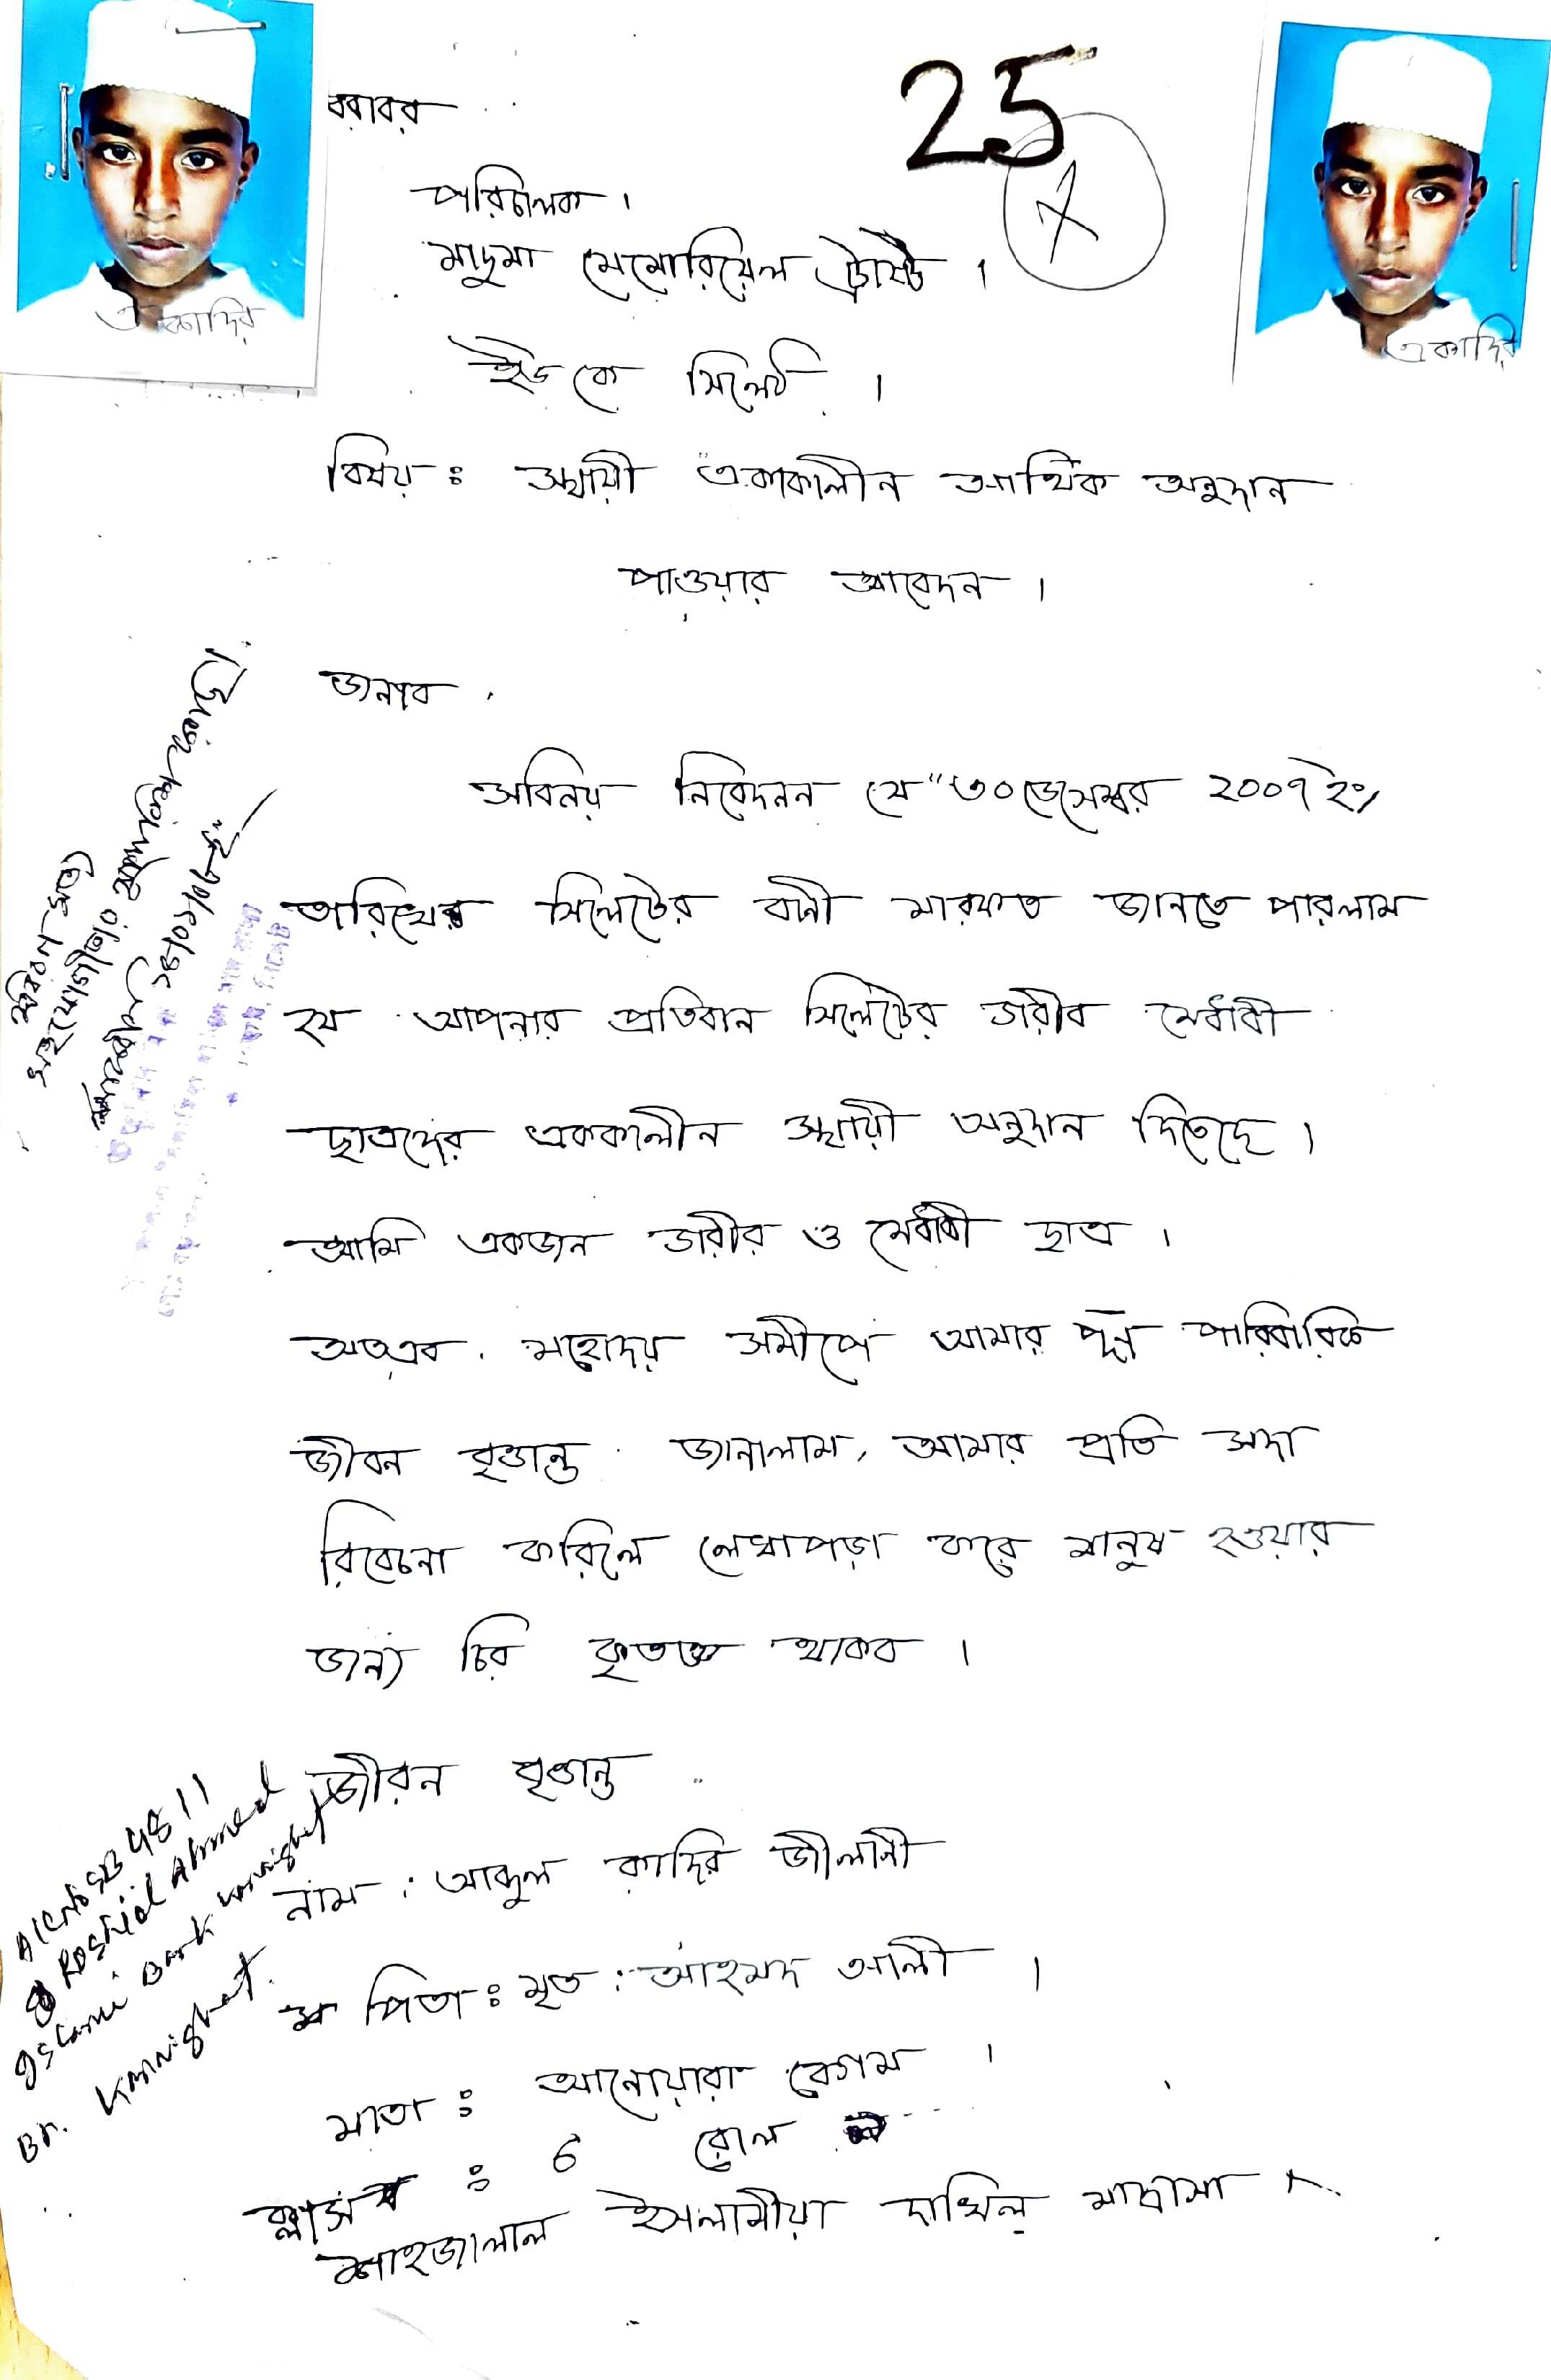 25
বরাবর
পরিচালক ।
মাদুমা মেমোরিয়েল ট্রাস্ট ।
ইউ কে সিলেট ।
বিষয় ঃ স্থায়ী এককালীন আর্থিক অনুদান
পাওয়ার আবেদন ।
জনাব ,
সবিনয় নিবেদন যে "৩০ ডেসেম্বর ২০০৭ ইং
তারিখের সিলেটের বানী মারফত জানতে পারলাম
যে আপনার প্রতিষ্ঠান সিলেটের গরীব মেধাবী
ছাত্রদের এককালীন স্থায়ী অনুদান দিতেছে ।
আমি একজন গরীব ও মেধাবী ছাত্র ।
অতএব , মহোদয় সমীপে আমার পূর্ন পারিবারিক
জীবন বৃত্তান্ত জানালাম, আমার প্রতি সদা
বিবেচনা করিলে লেখাপড়া করে মানুষ হওয়ার
জন্য চির কৃতজ্ঞ থাকব ।
জীবন বৃত্তান্ত
নাম : আব্দুল কাদির জীলানী
পিতা ঃ মৃত : আহমদ আলী ।
মাতা ঃ আনোয়ারা বেগম ।
ক্লাস ঃ ৬ রোল
শাহজালাল ইসলামীয়া দাখিল মাদ্রাসা ।
Rashid Ahmed
Br.